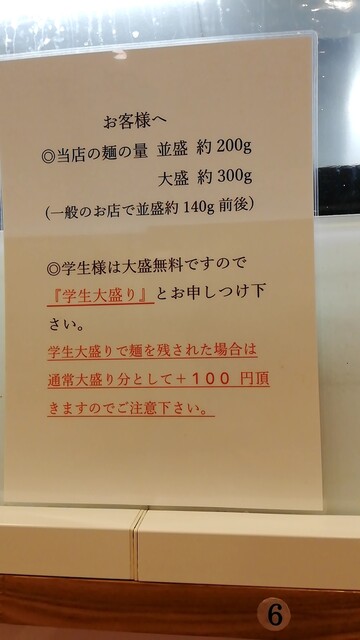 お客様へ
◎当店の麺の量 並盛 約200g
大盛 約300g
(一般のお店で並盛約140g前後)
◎学生様は大盛無料ですので
『学生大盛り』とお申しつけ下
さい。
学生大盛りで麺を残された場合は
通常大盛り分として＋１００ 円頂
きますのでご注意下さい。
6